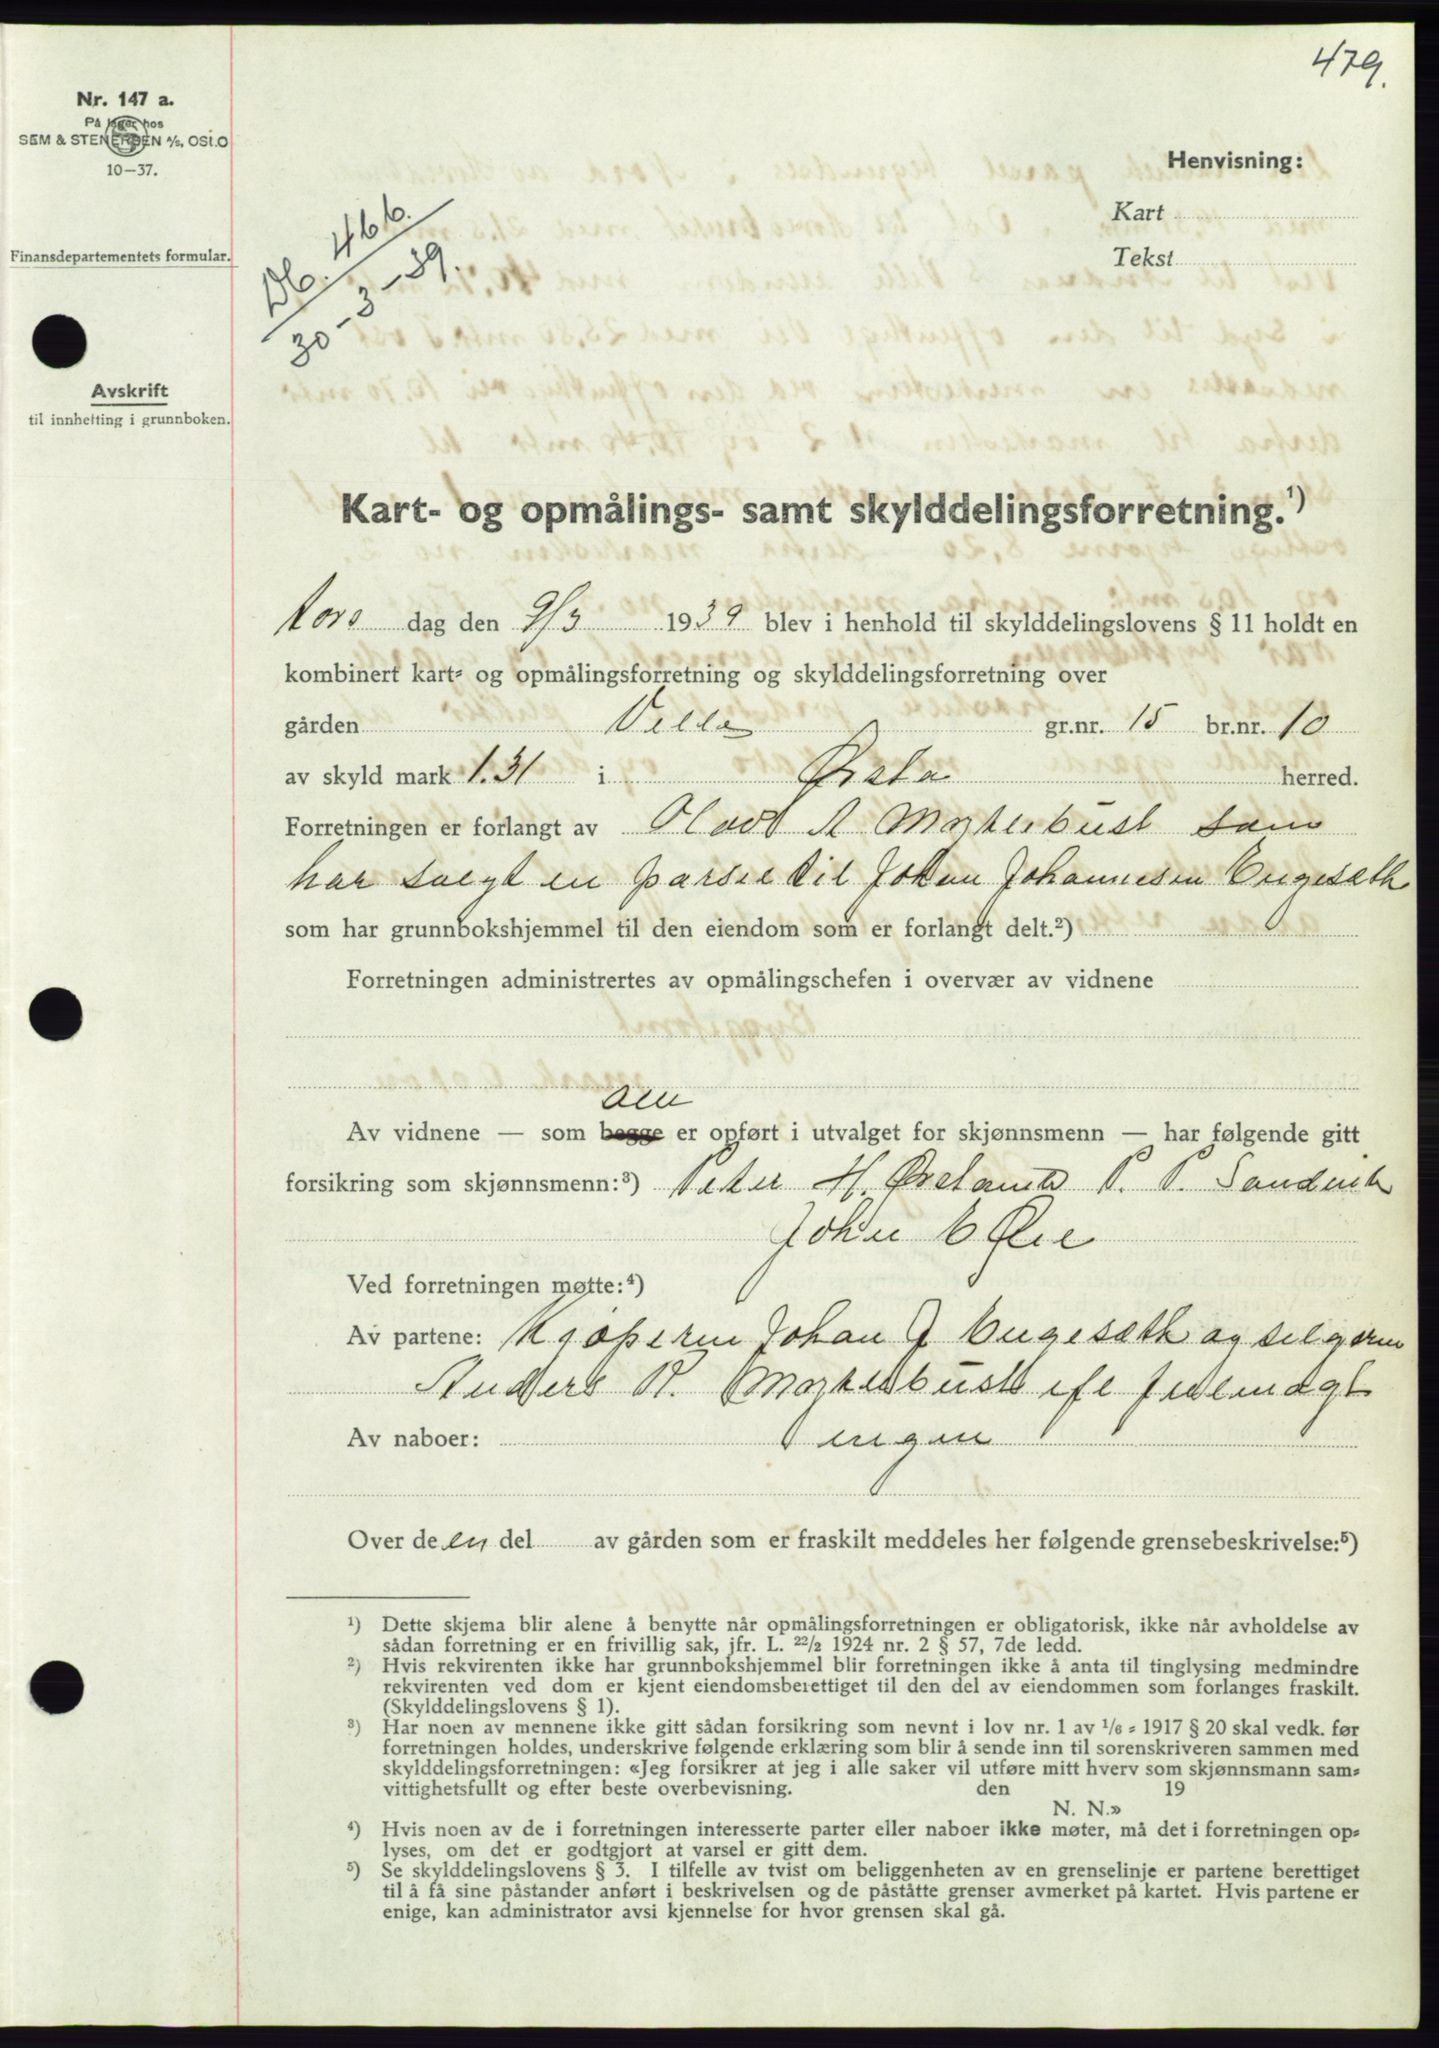 479.
Nr. 147 a.
På lager hos
SEM & STENERSEN A/S, OSLO
10-37.
Finansdepartementets formular.
Db. 466.
30-3-39.
Henvisning:
Kart
Tekst
Avskrift
til innhefting i grunnboken.
Kart- og opmålings- samt skylddelingsforretning.¹)
tors dag den 9/3 1939 blev i henhold til skylddelingslovens § 11 holdt en
kombinert kart- og opmålingsforretning og skylddelingsforretning over
gården Velle gr.nr. 15 br.nr. 10
av skyld mark 1.31 i Ørsta herred.
Forretningen er forlangt av Olav A Myklebust som
har solgt en parsel til Johan Johannesen Engesæth
som har grunnbokshjemmel til den eiendom som er forlangt delt.²)
Forretningen administrertes av opmålingschefen i overvær av vidnene
alle
Av vidnene — som begge er opført i utvalget for skjønnsmenn — har følgende gitt
forsikring som skjønnsmenn:³) Peter H. Ørstavik P. P. Sandvik
John E Øie
Ved forretningen møtte:⁴)
Av partene: Kjøperen Johan J Engesæth og selgeren
Anders R. Myklebust efl fuldmagt
Av naboer: ingen
Over de en del av gården som er fraskilt meddeles her følgende grensebeskrivelse:⁵)
¹) Dette skjema blir alene å benytte når opmålingsforretningen er obligatorisk, ikke når avholdelse av
sådan forretning er en frivillig sak, jfr. L. 22/2 1924 nr. 2 § 57, 7de ledd.
²) Hvis rekvirenten ikke har grunnbokshjemmel blir forretningen ikke å anta til tinglysing medmindre
rekvirenten ved dom er kjent eiendomsberettiget til den del av eiendommen som forlanges fraskilt.
(Skylddelingslovens § 1).
³) Har noen av mennene ikke gitt sådan forsikring som nevnt i lov nr. 1 av 1/6 - 1917 § 20 skal vedk. før
forretningen holdes, underskrive følgende erklæring som blir å sende inn til sorenskriveren sammen med
skylddelingsforretningen: «Jeg forsikrer at jeg i alle saker vil utføre mitt hverv som skjønnsmann sam-
vittighetsfullt og efter beste overbevisning. den 19
N. N.»
⁴) Hvis noen av de i forretningen interesserte parter eller naboer ikke møter, må det i forretningen op-
lyses, om det er godtgjort at varsel er gitt dem.
⁵) Se skylddelingslovens § 3. I tilfelle av tvist om beliggenheten av en grenselinje er partene berettiget
til å få sine påstander anført i beskrivelsen og de påståtte grenser avmerket på kartet. Hvis partene er
enige, kan administrator avsi kjennelse for hvor grensen skal gå.